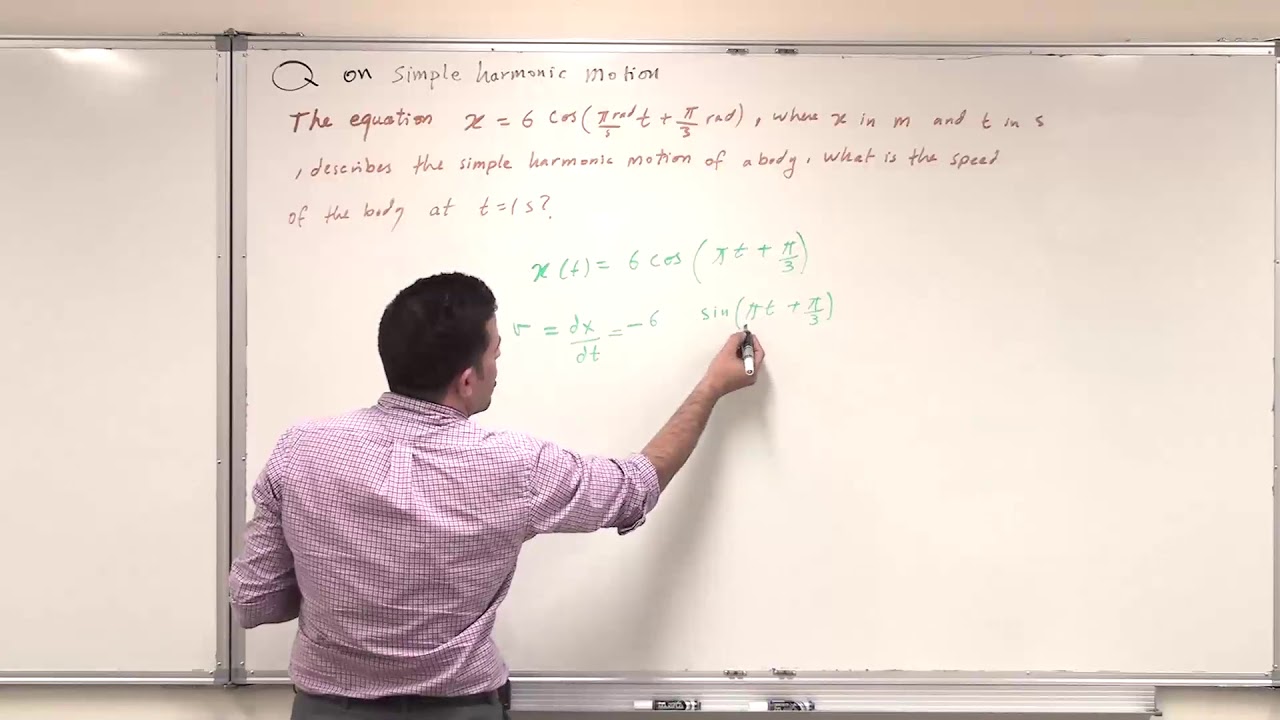 Q on simple harmonic motion
The equation x = 6 cos(π rad/s t + π/3 rad), where x in m and t in s
, describes the simple harmonic motion of a body. What is the speed
of the body at t=1s?
x(t) = 6 cos(πt + π/3)
v = dx/dt = -6 sin(πt + π/3)